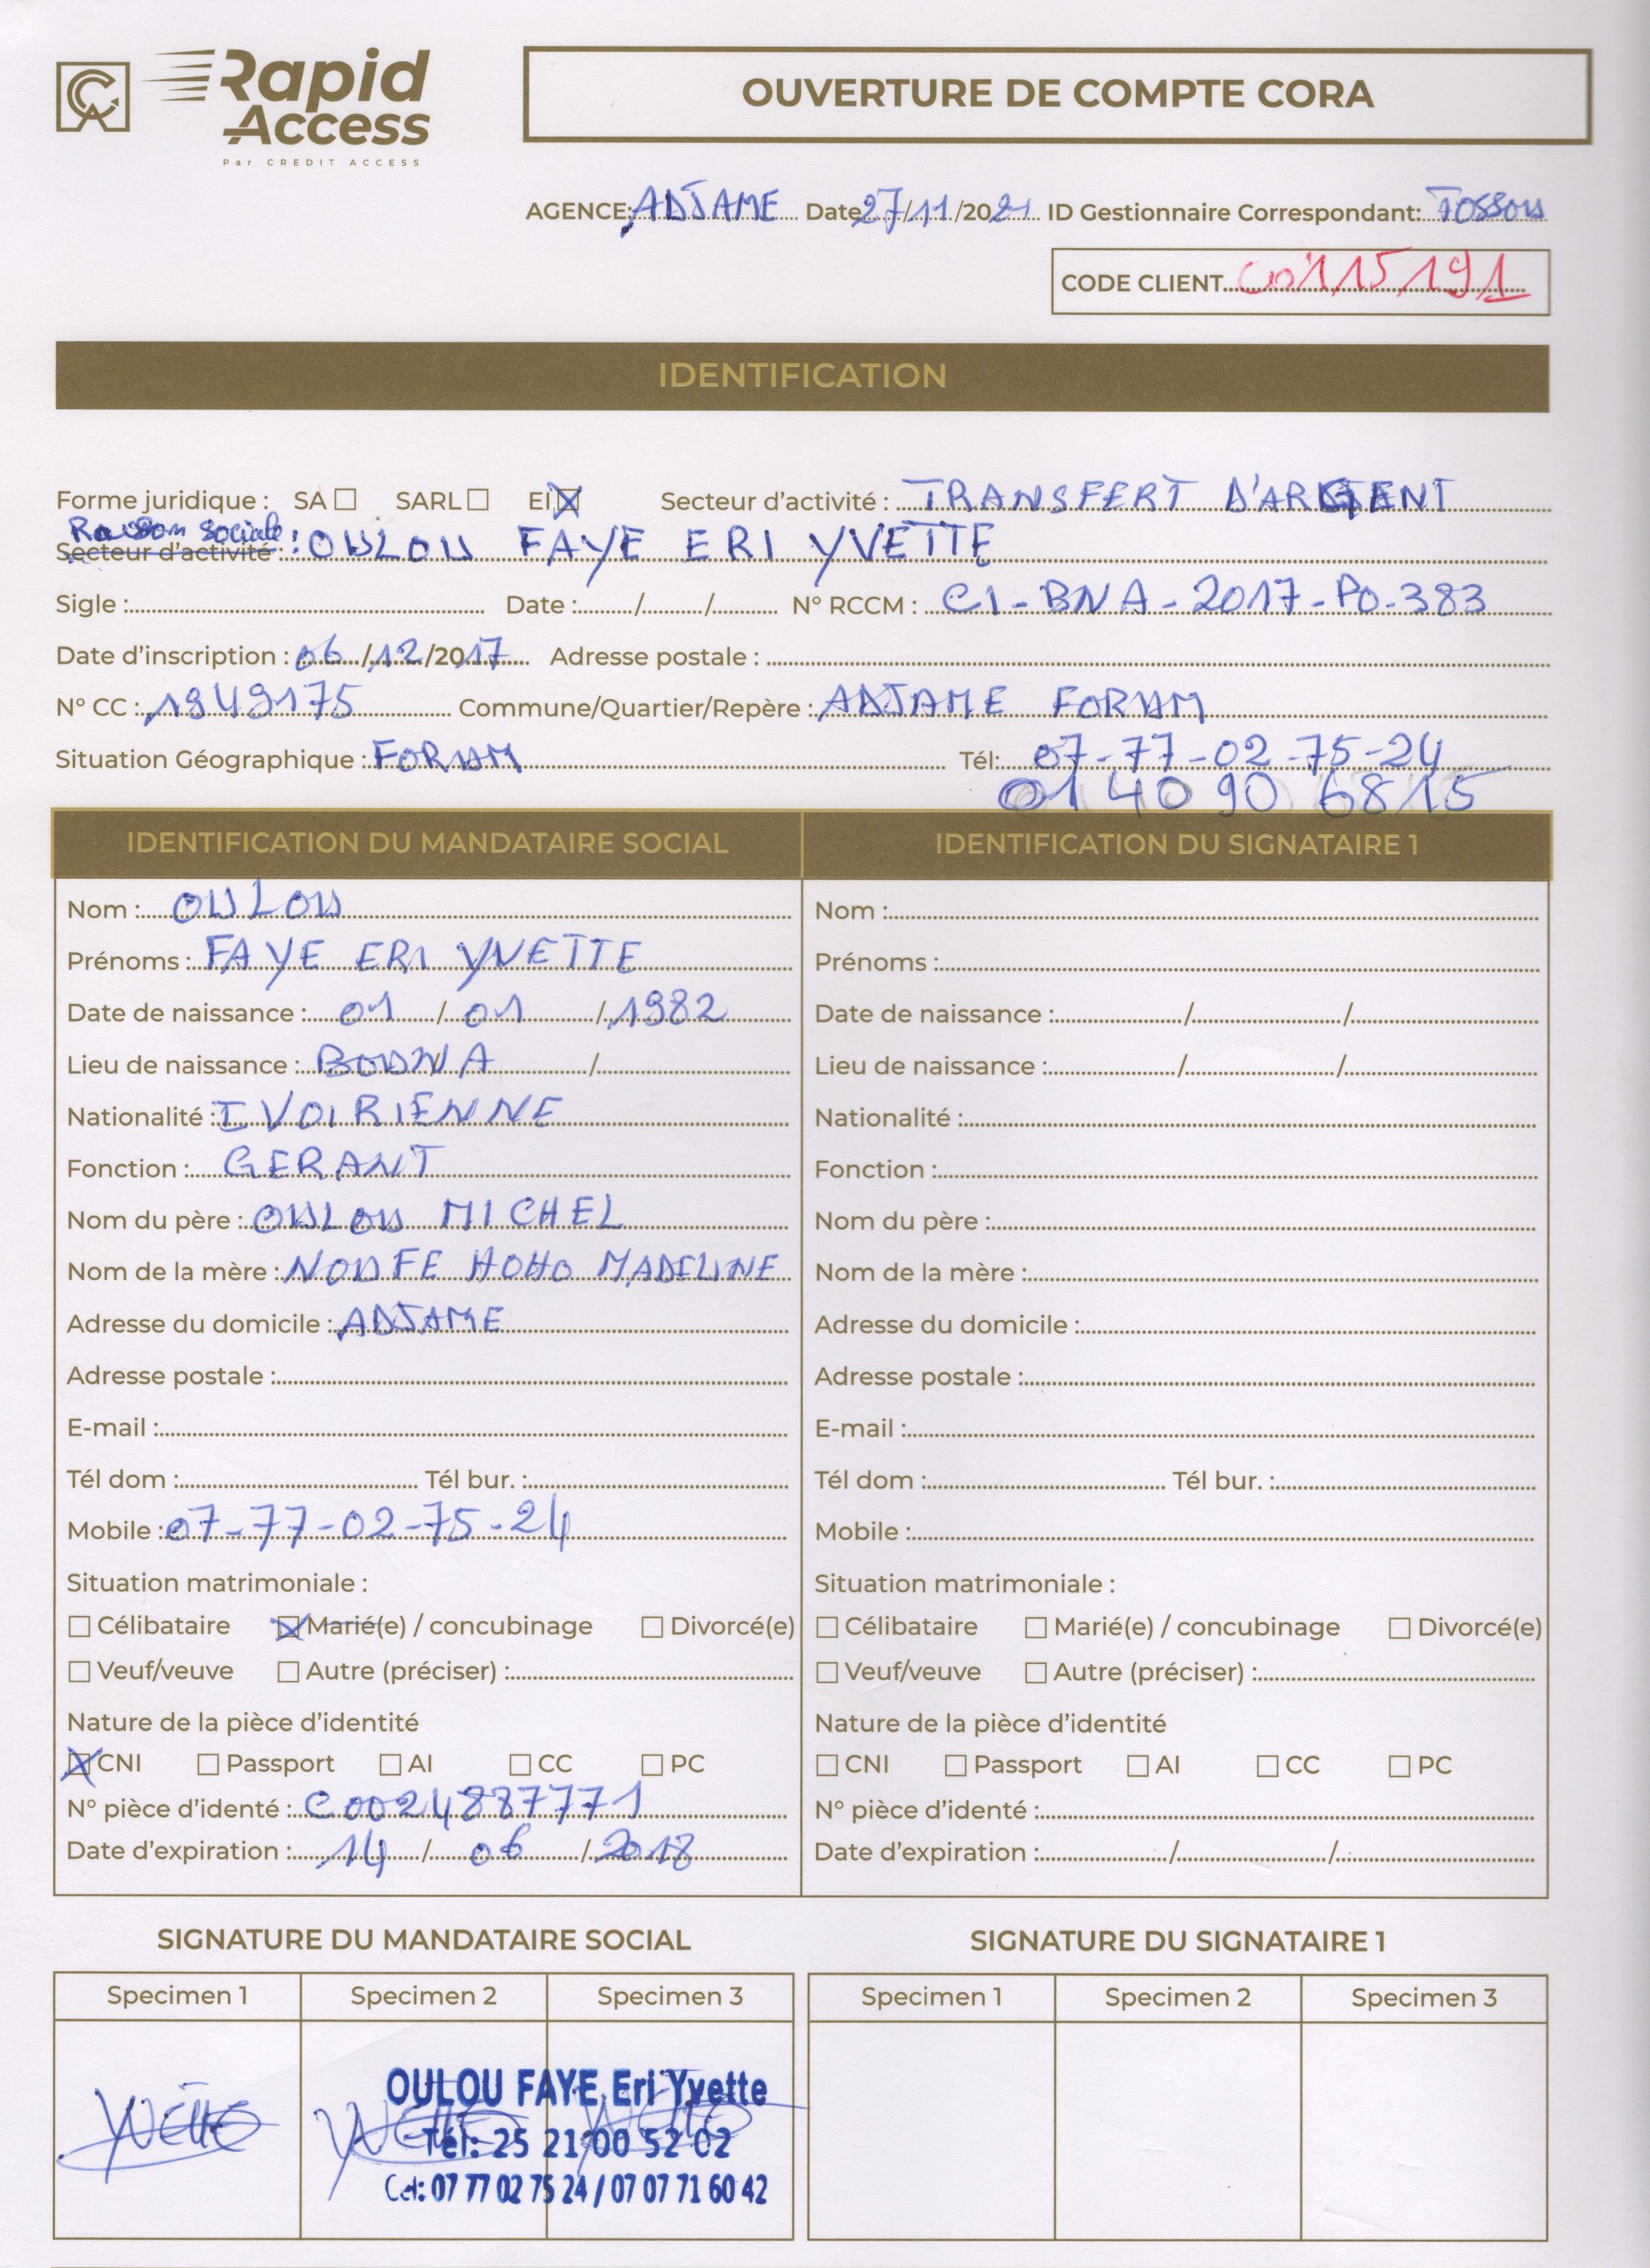 Rapid
Access
Par CREDIT ACCESS
OUVERTURE DE COMPTE CORA
AGENCE: ADJAME Date 27/11/2021 ID Gestionnaire Correspondant: FOSSOU
CODE CLIENT C0115191
IDENTIFICATION
Forme juridique : SA SARL EI Secteur d'activité : TRANSFERT D'ARGENT
Raison sociale :
Secteur d'activité : OULOU FAYE ERI YVETTE
Sigle : Date : / / N° RCCM : CI-BNA-2017-PO-383
Date d'inscription : 06/12/2017 Adresse postale :
N° CC : 1949175 Commune/Quartier/Repère : ADJAME FORUM
Situation Géographique : FORUM Tél: 07-77-02-75-24
01 40 90 68 15
IDENTIFICATION DU MANDATAIRE SOCIAL IDENTIFICATION DU SIGNATAIRE 1
Nom : OULOU Nom :
Prénoms : FAYE ERI YVETTE Prénoms :
Date de naissance : 01 / 01 / 1982 Date de naissance : / /
Lieu de naissance : BOUNA / Lieu de naissance : / /
Nationalité : IVOIRIENNE Nationalité :
Fonction : GERANT Fonction :
Nom du père : OULOU MICHEL Nom du père :
Nom de la mère : NOUFE HOHO MADELINE Nom de la mère :
Adresse du domicile : ADJAME Adresse du domicile :
Adresse postale : Adresse postale :
E-mail : E-mail :
Tél dom : Tél bur. : Tél dom : Tél bur. :
Mobile : 07-77-02-75-24 Mobile :
Situation matrimoniale : Situation matrimoniale :
Célibataire Marié(e) / concubinage Divorcé(e) Célibataire Marié(e) / concubinage Divorcé(e)
Veuf/veuve Autre (préciser) : Veuf/veuve Autre (préciser) :
Nature de la pièce d'identité Nature de la pièce d'identité
CNI Passport AI CC PC CNI Passport AI CC PC
N° pièce d'identé : C0024887771 N° pièce d'identé :
Date d'expiration : 14 / 06 / 2018 Date d'expiration : / /
SIGNATURE DU MANDATAIRE SOCIAL SIGNATURE DU SIGNATAIRE 1
Specimen 1 Specimen 2 Specimen 3 Specimen 1 Specimen 2 Specimen 3
Yvette Yvette Yvette
OULOU FAYE Eri Yvette
Tél: 25 21 00 52 02
Cel: 07 77 02 75 24 / 07 07 71 60 42